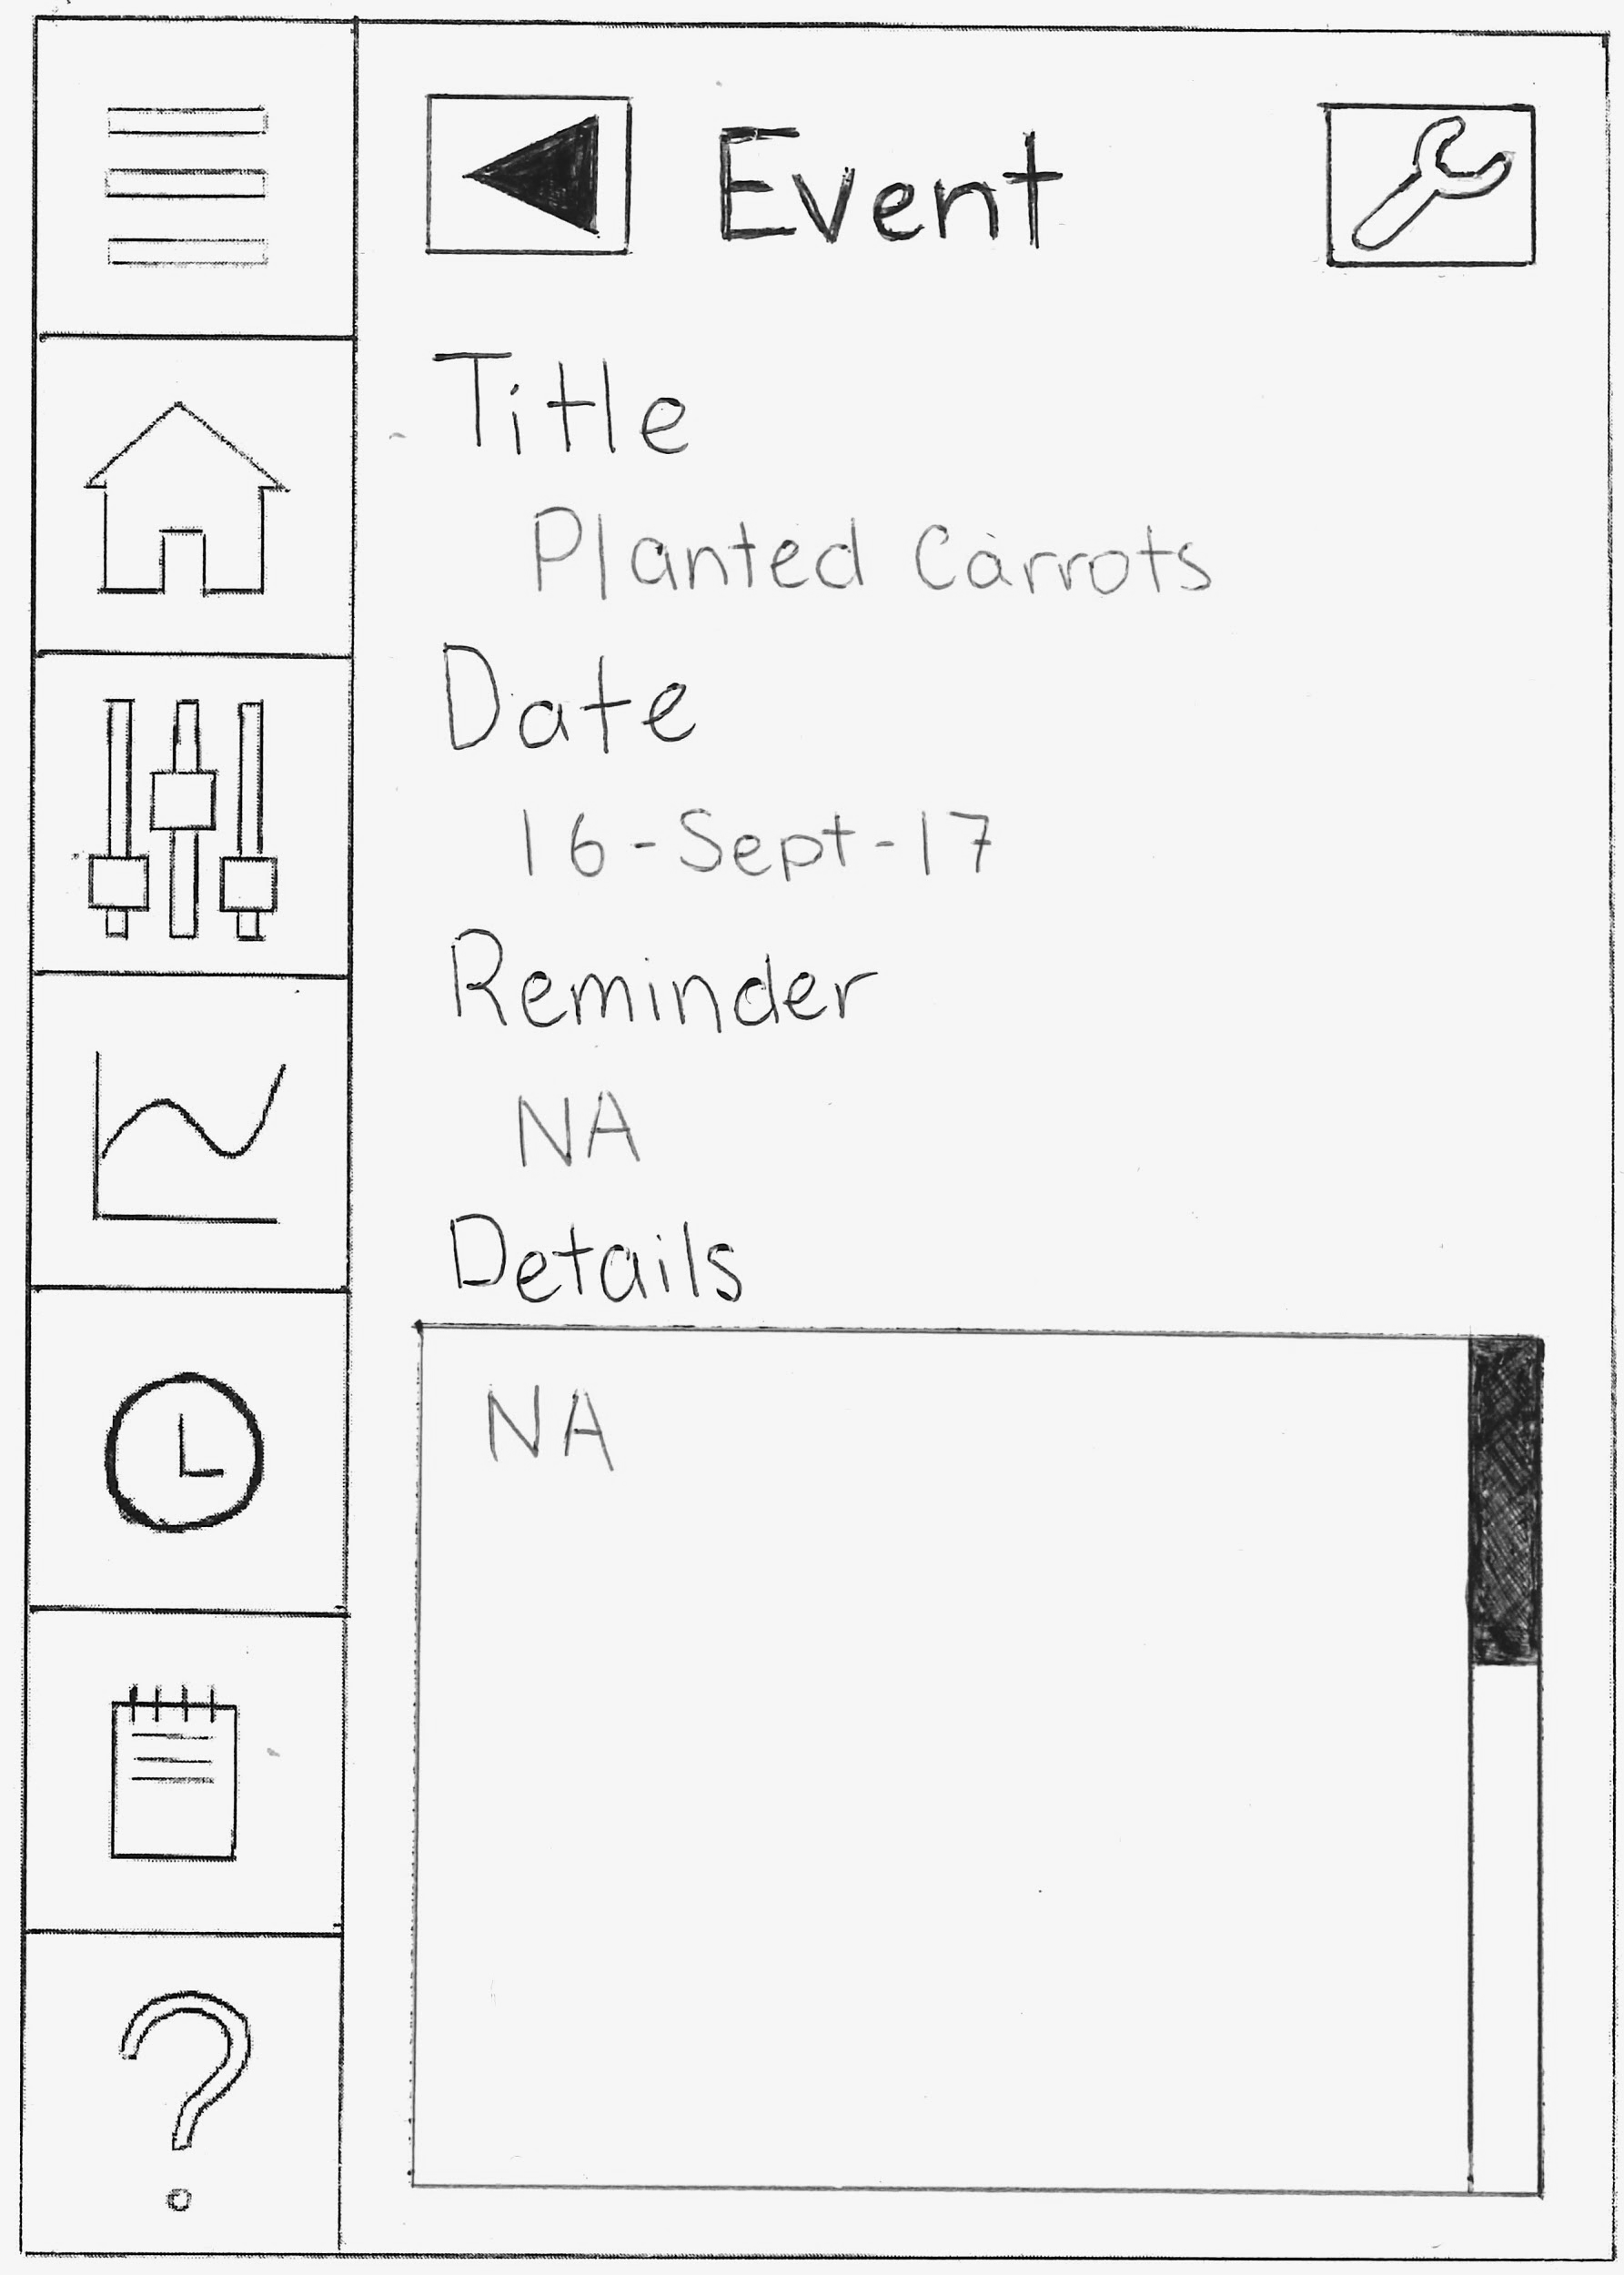 Event
Title
Planted Carrots
Date
16-Sept-17
Reminder
NA
Details
NA
?